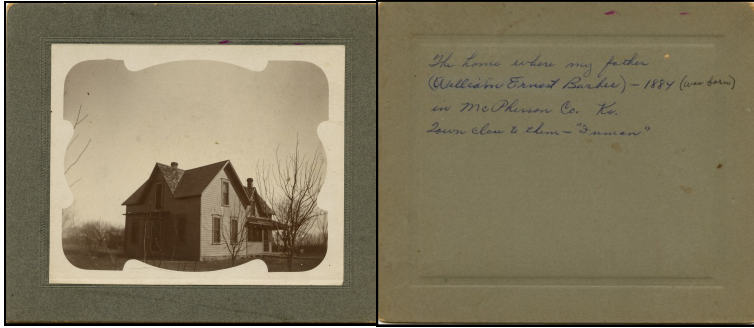 The home where my father
(William Ernest Barbee) - 1884 (was born)
in McPherson Co. Ks.
Town close to them - "Inman"